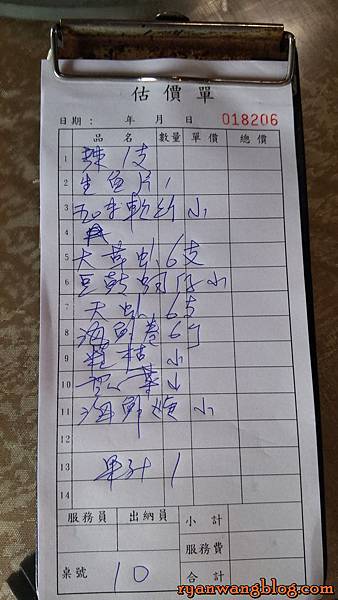 估價單
日期: 年 月 日 018206
品名 數量 單價 總價
1 辣 1支
2 生魚片 1
3 軟絲 小
4
5 大草虾 6支
6 豆豉蚵仔 小
7 大虾 6支
8 海鮮卷 6個
9 小
10 小
11 海鮮 小
12
13 果汁 1
14
服務員 出納員 小計
服務費
桌號 10 合計
ryanwangblog.com